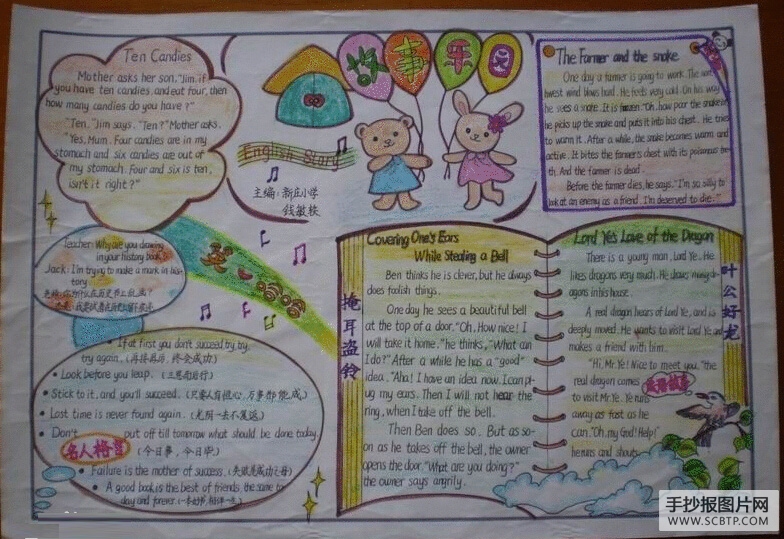 Ten Candies
Mother asks her son, "Jim, if
you have ten candies, and eat four, then
how many candies do you have?"
"Ten." Jim says. "Ten?" Mother asks.
"Yes, Mum. Four candies are in my
stomach and six candies are out of
my stomach. Four and six is ten,
isn't it right?"
故事乐园
English Story
主编：新庄小学
钱敏枝
The Farmer and the snake
One day a farmer is going to work. The nort
hwest wind blows hard. He feels very cold. On his way
he sees a snake. It is frozen. "Oh, how poor the snake is!"
he picks up the snake and puts it into his chest. He tries
to warm it. After a while, the snake becomes warm and
active. It bites the farmer's chest with its poisonous tee
th. And the farmer is dead.
Before the farmer dies, he says, "I'm so silly to
look at an enemy as a friend. I'm deserved to die."
Teacher: Why are you drawing
in your history book?
Jack: I'm trying to make a mark in his-
tory.
老师：你为什么在历史书上乱画？
英 哈哈
If at first you don't succeed try, try,
try again. (再接再厉，终会成功)
Look before you leap. (三思而后行)
Stick to it, and you'll succeed. (只要人有恒心，万事都能成)
Lost time is never found again. (光阴一去不复返)
Don't put off till tomorrow what should be done today.
名人格言 (今日事，今日毕)
Failure is the mother of success. (失败是成功之母)
A good book is the best of friends, the same to
day and forever.
掩耳盗铃
Covering One's Ears
While Stealing a Bell
Ben thinks he is clever, but he always
does foolish things.
One day he sees a beautiful bell
at the top of a door. "Oh, How nice! I
will take it home." he thinks, "What can
I do?" After a while he has a "good"
idea. "Aha! I have an idea now. I can pl-
ug my ears. Then I will not hear the
ring, when I take off the bell.
Then Ben does so. But as so-
on as he takes off the bell, the owner
opens the door. "What are you doing?"
the owner says angrily.
Lord Ye's Love of the Dragon
There is a young man, Lord Ye. He
likes dragons very much. He draws many dr-
agons in his house.
A real dragon hears of Lord Ye, and is
deeply moved. He wants to visit Lord Ye and
makes a friend with him.
"Hi, Mr. Ye! Nice to meet you." the
real dragon comes
to visit Mr. Ye. Ye runs
away as fast as he
can. "Oh, my God! Help!"
he runs and shouts.
成语故事
叶公好龙
手抄报图片网
WWW.SCBTP.COM